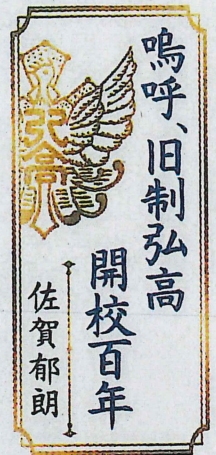 嗚呼、旧制弘高
開校百年
佐賀郁朗
弘高